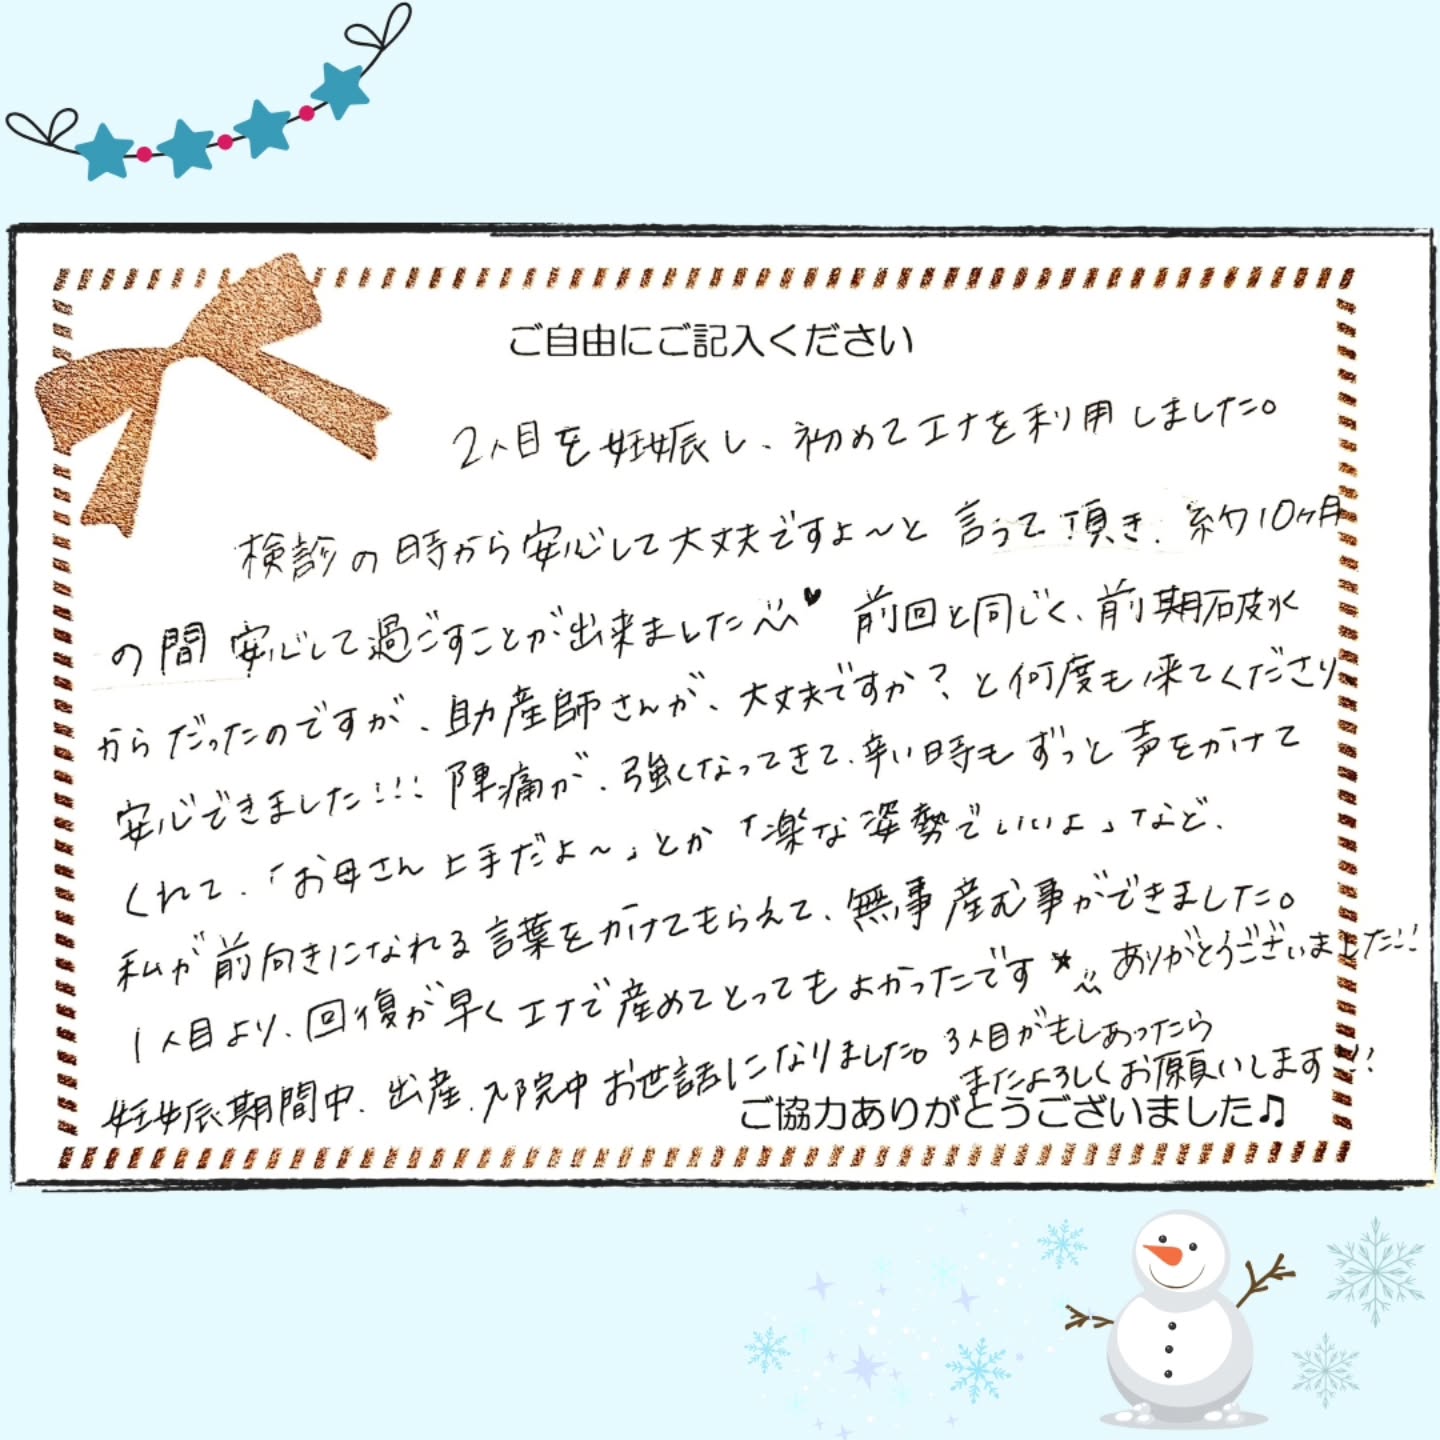 ご自由にご記入ください
2人目を妊娠し、初めてエナを利用しました。
検診の時から安心して大丈夫ですよ〜と言って頂き、約10ヶ月
の間安心して過ごすことが出来ました♥ 前回と同じく、前期破水
からだったのですが、助産師さんが、大丈夫ですか?と何度も来てくださり
安心できました!!! 陣痛が、強くなってきて、辛い時もずっと声をかけて
くれて、「お母さん上手だよ〜」とか「楽な姿勢でいいよ」など、
私が前向きになれる言葉をかけてもらえて、無事産む事ができました。
1人目より、回復が早くエナで産めてとってもよかったです ありがとうございました!!
妊娠期間中、出産、入院中お世話になりました。3人目がもしあったら
またよろしくお願いします!!
ご協力ありがとうございました♫